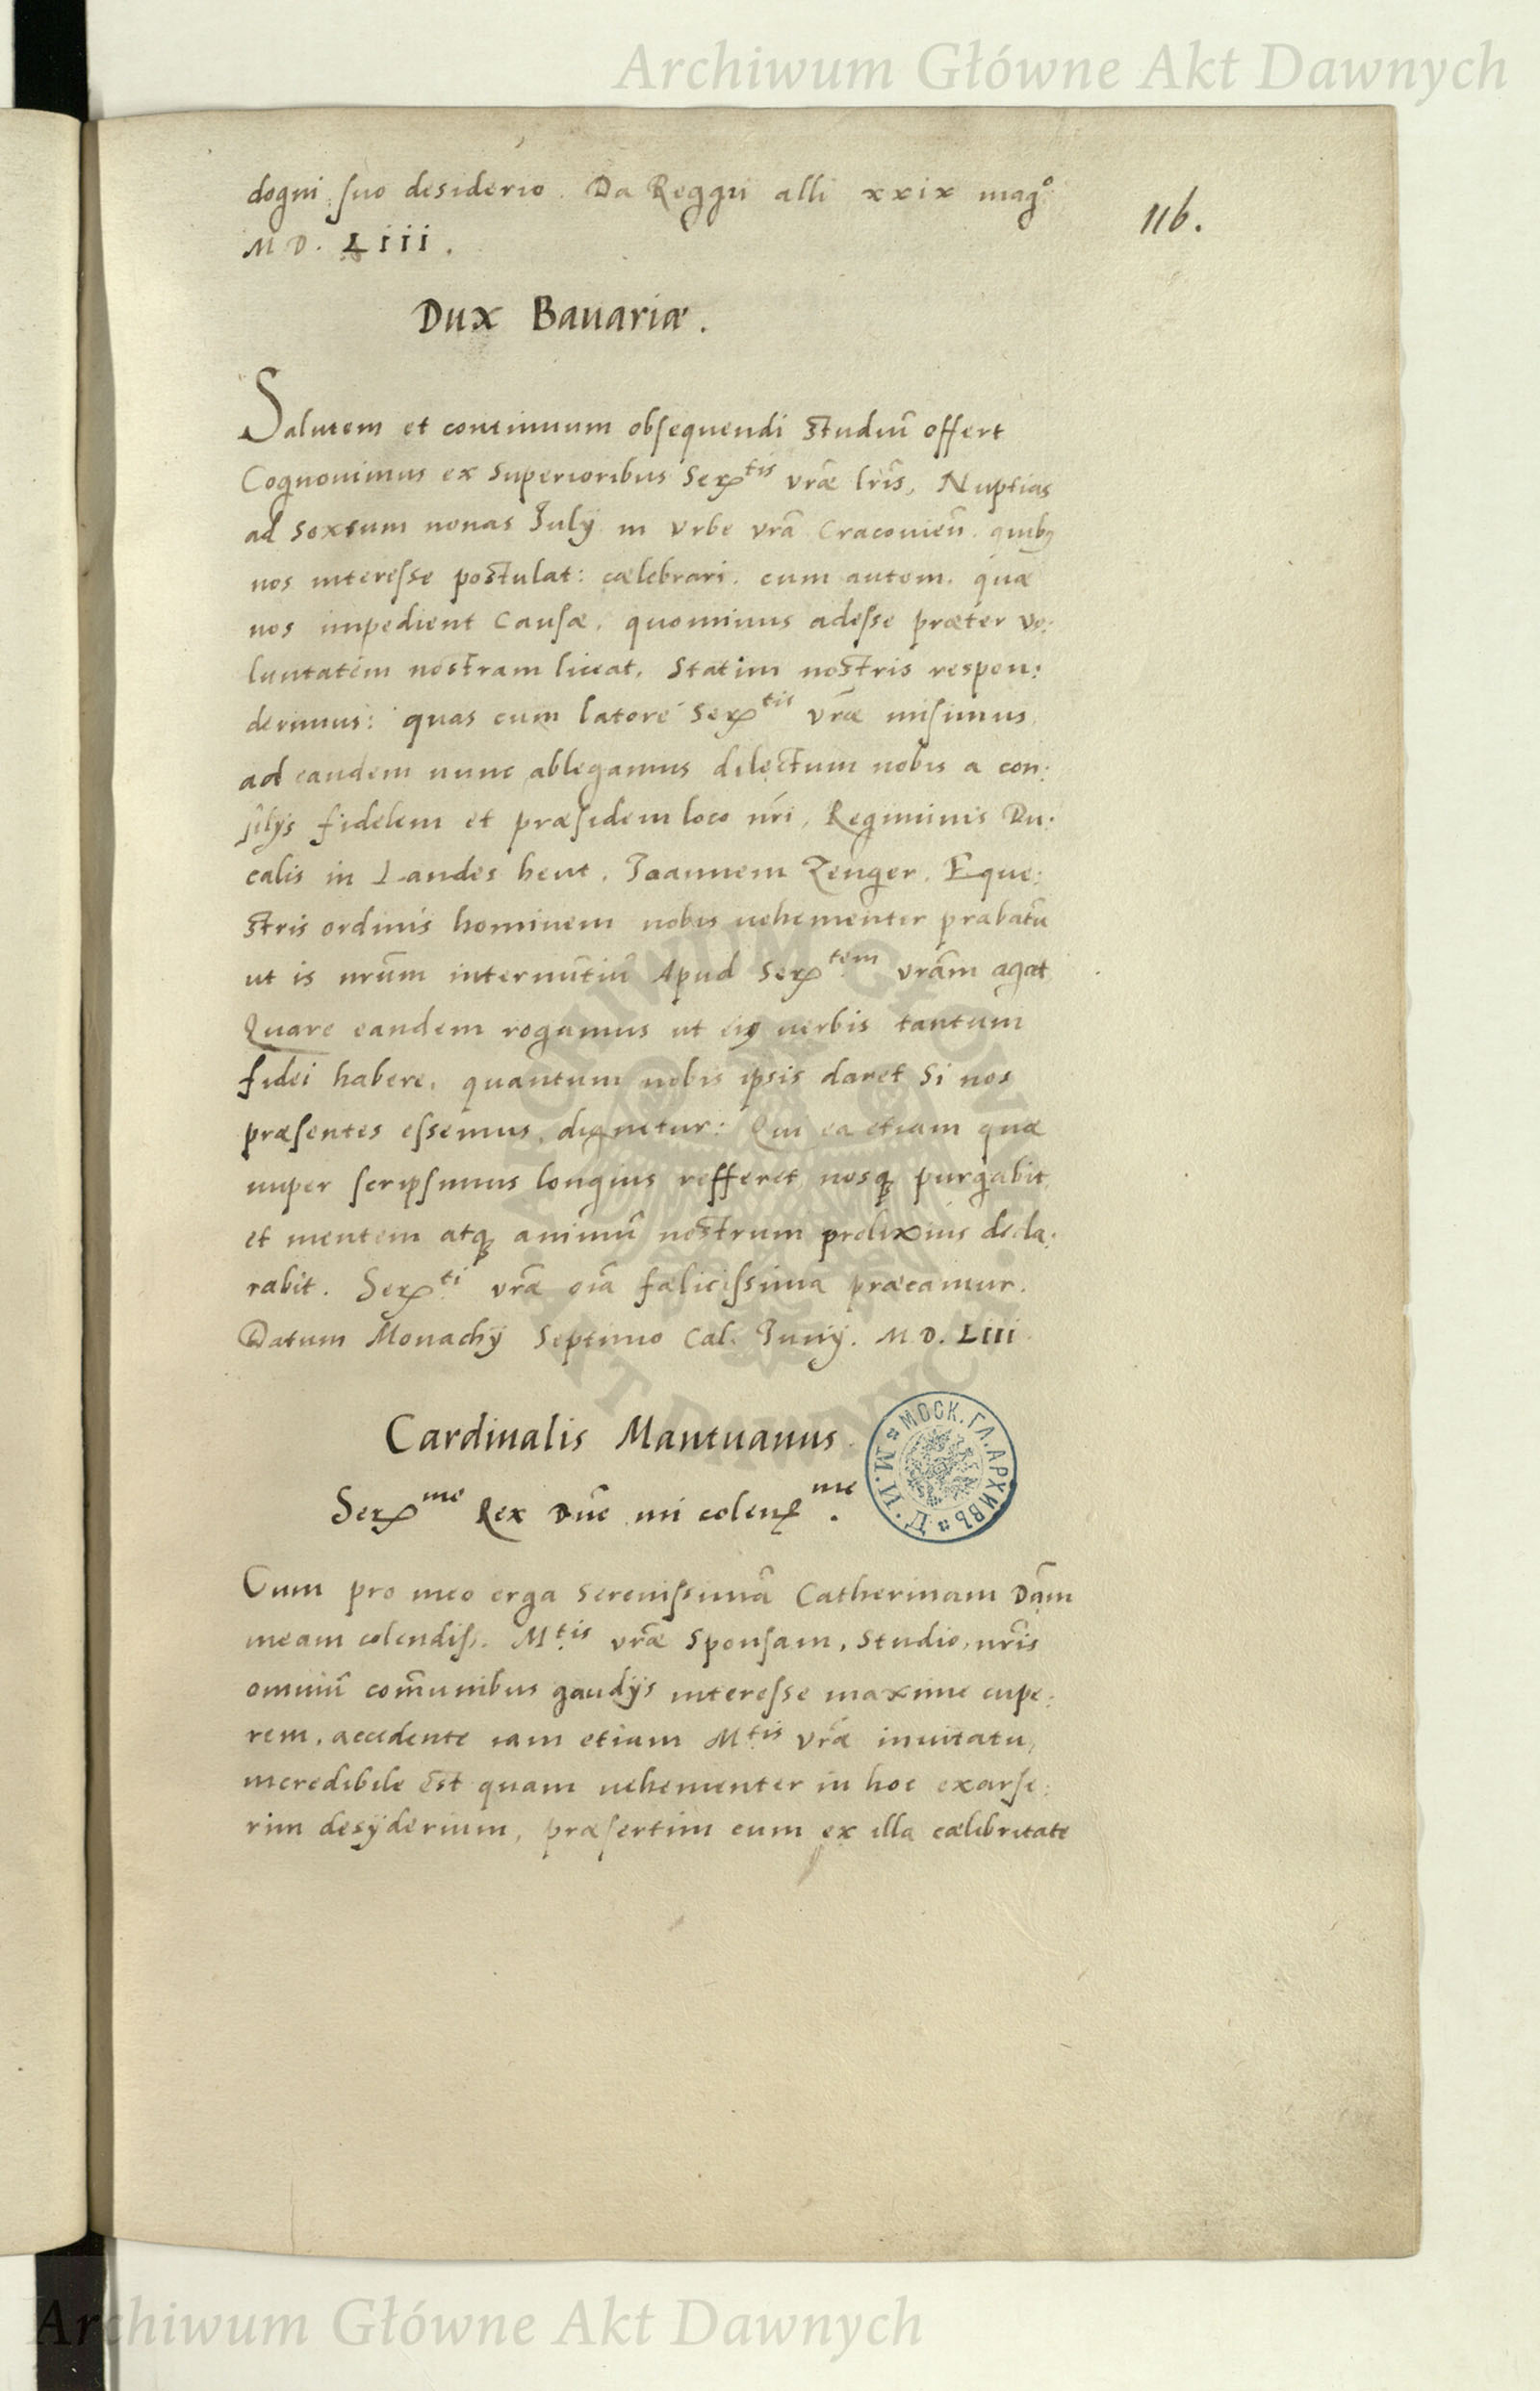 Archiwum Główne Akt Dawnych
dogni suo desiderio. Da Reggii alli xxix mag.º
M D. Liii.
116.
Dux Bauariæ.
Salutem et continuum obsequendi studiũ offert
Cognouimus ex superioribus Ser.tis vræ̃ lrĩs, Nuptias
ad sextum nonas Julÿ in vrbe vrã Cracouien̄. quibꝫ
nos interesse postulat: cælebrari. cum autem. quæ
nos impedient causæ, quominus adesse præter vo:
luntatem nostram liceat, statim nostris respon:
derimus: quas cum latore Ser.tis vræ̃ misimus,
ad eandem nunc ablegamus dilectum nobis a con:
silÿs fidelem et præsidem loco nr̃i, Regiminis Du:
calis in Landes heut, Joannem Zenger, Eque:
stris ordinis hominem nobis uehementer prabatũ
ut is nrũm internũtiũ Apud Ser.tem vrãm agat
Quare eandem rogamus ut eiꝰ uerbis tantum
fidei habere, quantum nobis ipsis daret si nos
præsentes essemus, dignetur: Qui ea etiam quæ
nuper scripsimus longius refferet nosqꝫ purgabit,
et mentem atqꝫ animũ nostrum prolixius decla:
rabit. Ser.ti vræ̃ oĩa fælicissima præcamur.
Datum Monachÿ Septimo Cal. Junÿ. M D. Liii.
Cardinalis Mantuanus.
Ser.me Rex Dñe mi colen.me
МОСК. ГЛ. АРХИВЪ М. И. Д.
Cum pro meo erga Serenissimã Catherinam Dãm
meam colendiss. M.tis vræ̃ Sponsam, studio, nrĩs
omniũ com̃unibus gaudÿs interesse maxime cupe:
rem, accedente iam etiam M.tis vræ̃ inuitatu,
incredibile est quam uehementer in hoc exarse:
rim desÿderium, præsertim cum ex illa cælebritate
Archiwum Główne Akt Dawnych